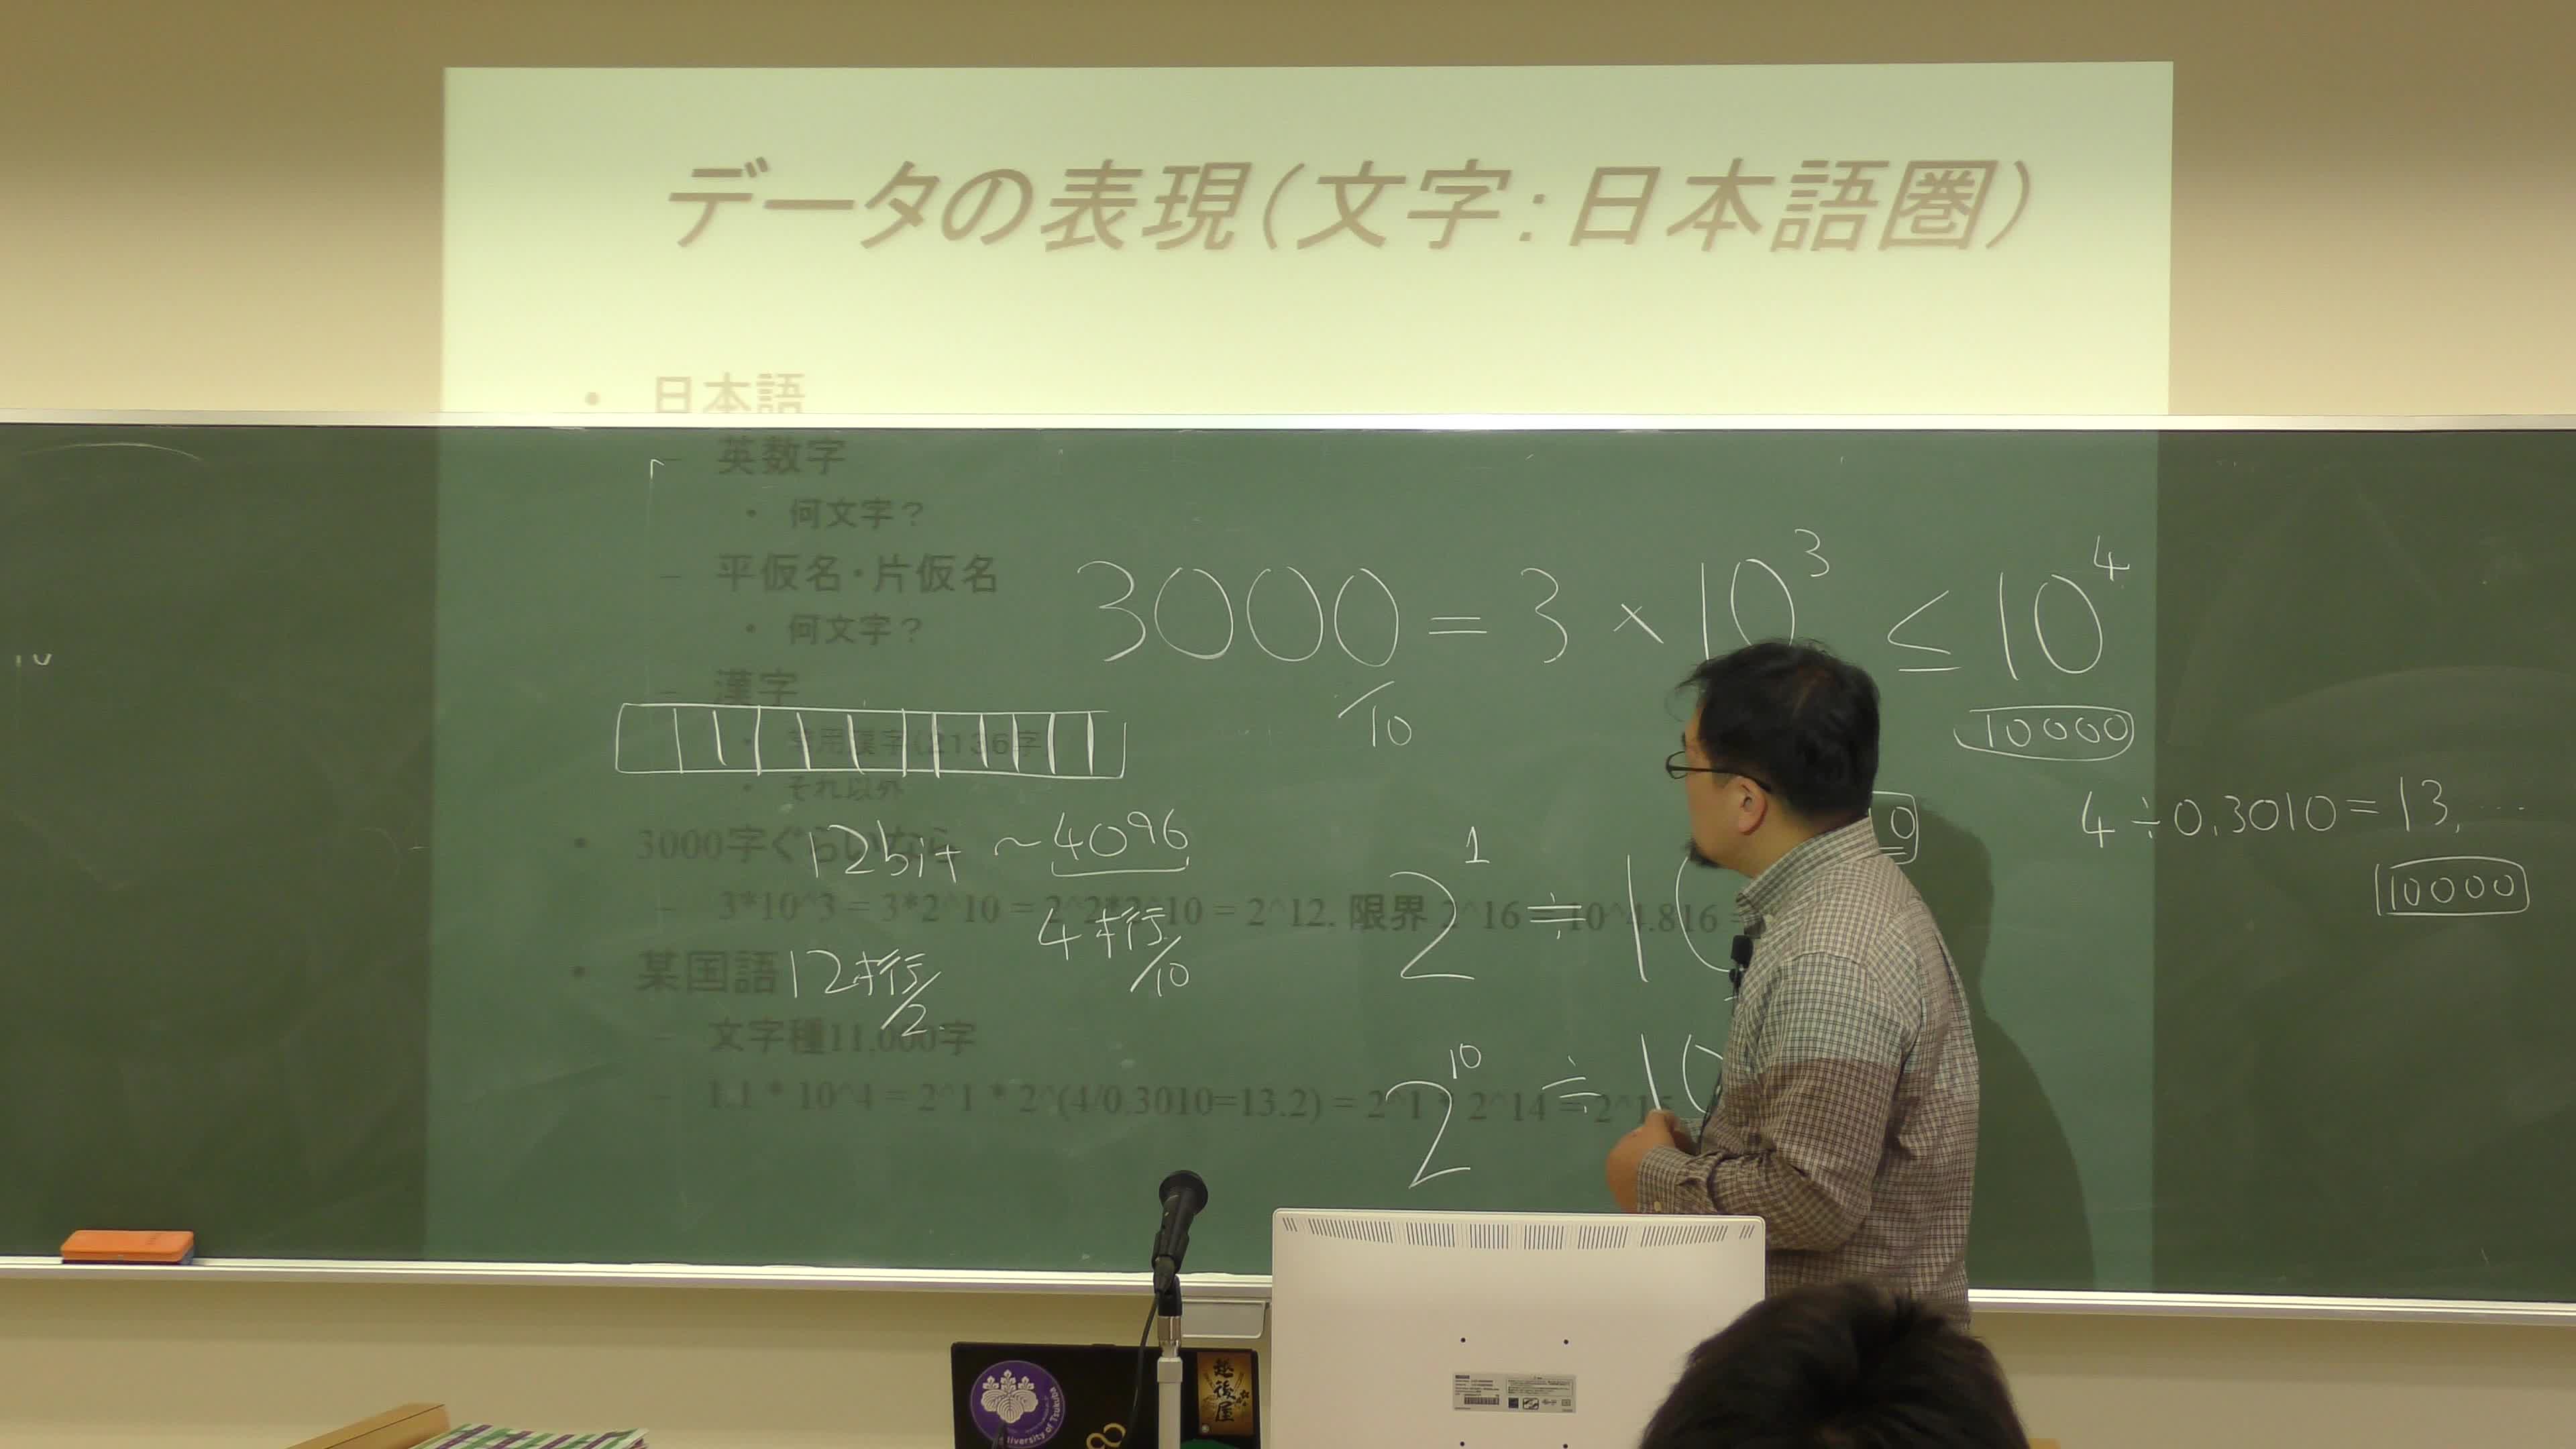 データの表現(文字:日本語圏)
• 日本語
– 英数字
• 何文字?
– 平仮名・片仮名
• 何文字?
– 漢字
• 常用漢字(2136字)
• それ以外
• 3000字ぐらいなら
– 3*10^3 = 3*2^10 = 2^2*2^10 = 2^12. 限界 2^16 = 10^4.816 =
• 某国語
– 文字種11.000字
– 1.1 * 10^4 = 2^1 * 2^(4/0.3010=13.2) = 2^1 * 2^14 = 2^15
3000 = 3 × 10³ ≤ 10⁴
/10
10000
12bit ~4096
4桁/10
12桁/2
2¹ ≒ 10
2¹⁰ ≒ 10
4÷0.3010=13....
10000
University of Tsukuba
越後屋